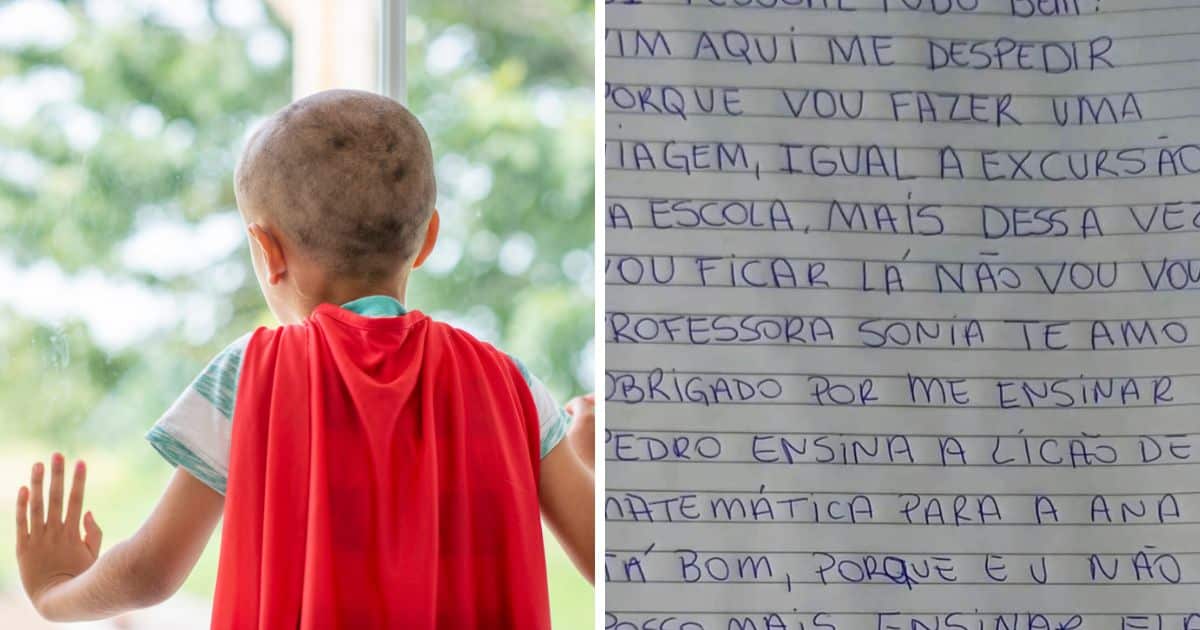 PESSOAL TUDO BEM!
VIM AQUI ME DESPEDIR
PORQUE VOU FAZER UMA
VIAGEM, IGUAL A EXCURSÃO
A ESCOLA, MAIS DESSA VEZ
VOU FICAR LÁ NÃO VOU
PROFESSORA SONIA TE AMO
OBRIGADO POR ME ENSINAR
PEDRO ENSINA A LICÃO DE
MATEMÁTICA PARA A ANA
TÁ BOM, PORQUE EU NÃO
POSSO MAIS ENSINAR